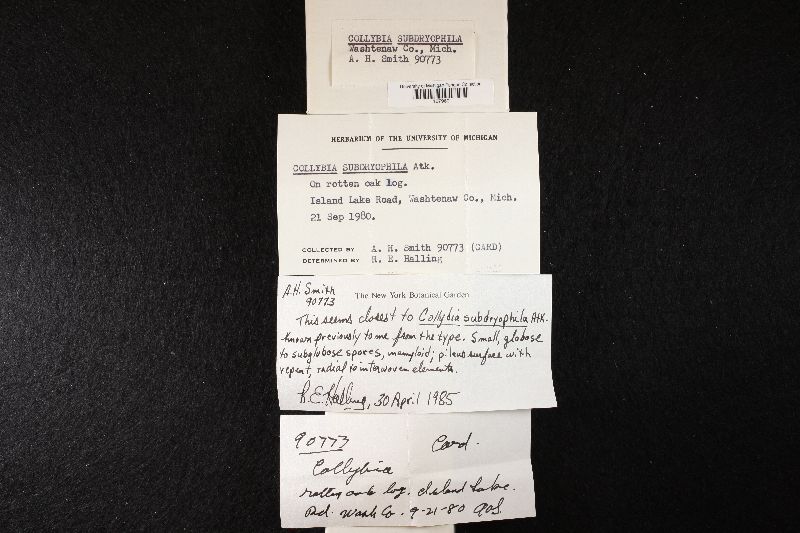 COLLYBIA SUBDRYOPHILA
Washtenaw Co., Mich.
A. H. Smith 90773
University of Michigan Fungus Collection
HERBARIUM OF THE UNIVERSITY OF MICHIGAN
COLLYBIA SUBDRYOPHILA Atk.
On rotten oak log.
Island Lake Road, Washtenaw Co., Mich.
21 Sep 1980.
COLLECTED BY A. H. Smith 90773 (CARD)
DETERMINED BY R. E. Halling
A.H. Smith
90773
The New York Botanical Garden
This seems closest to Collybia subdryophila Atk.
known previously to me from the type. Small, globose
to subglobose spores, inamyloid; pileus surface with
repent, radial to interwoven elements.
R.E. Halling, 30 April 1985
90773 Card.
Collybia
rotten oak log. Island Lake.
Rd. Wash Co. 9-21-80